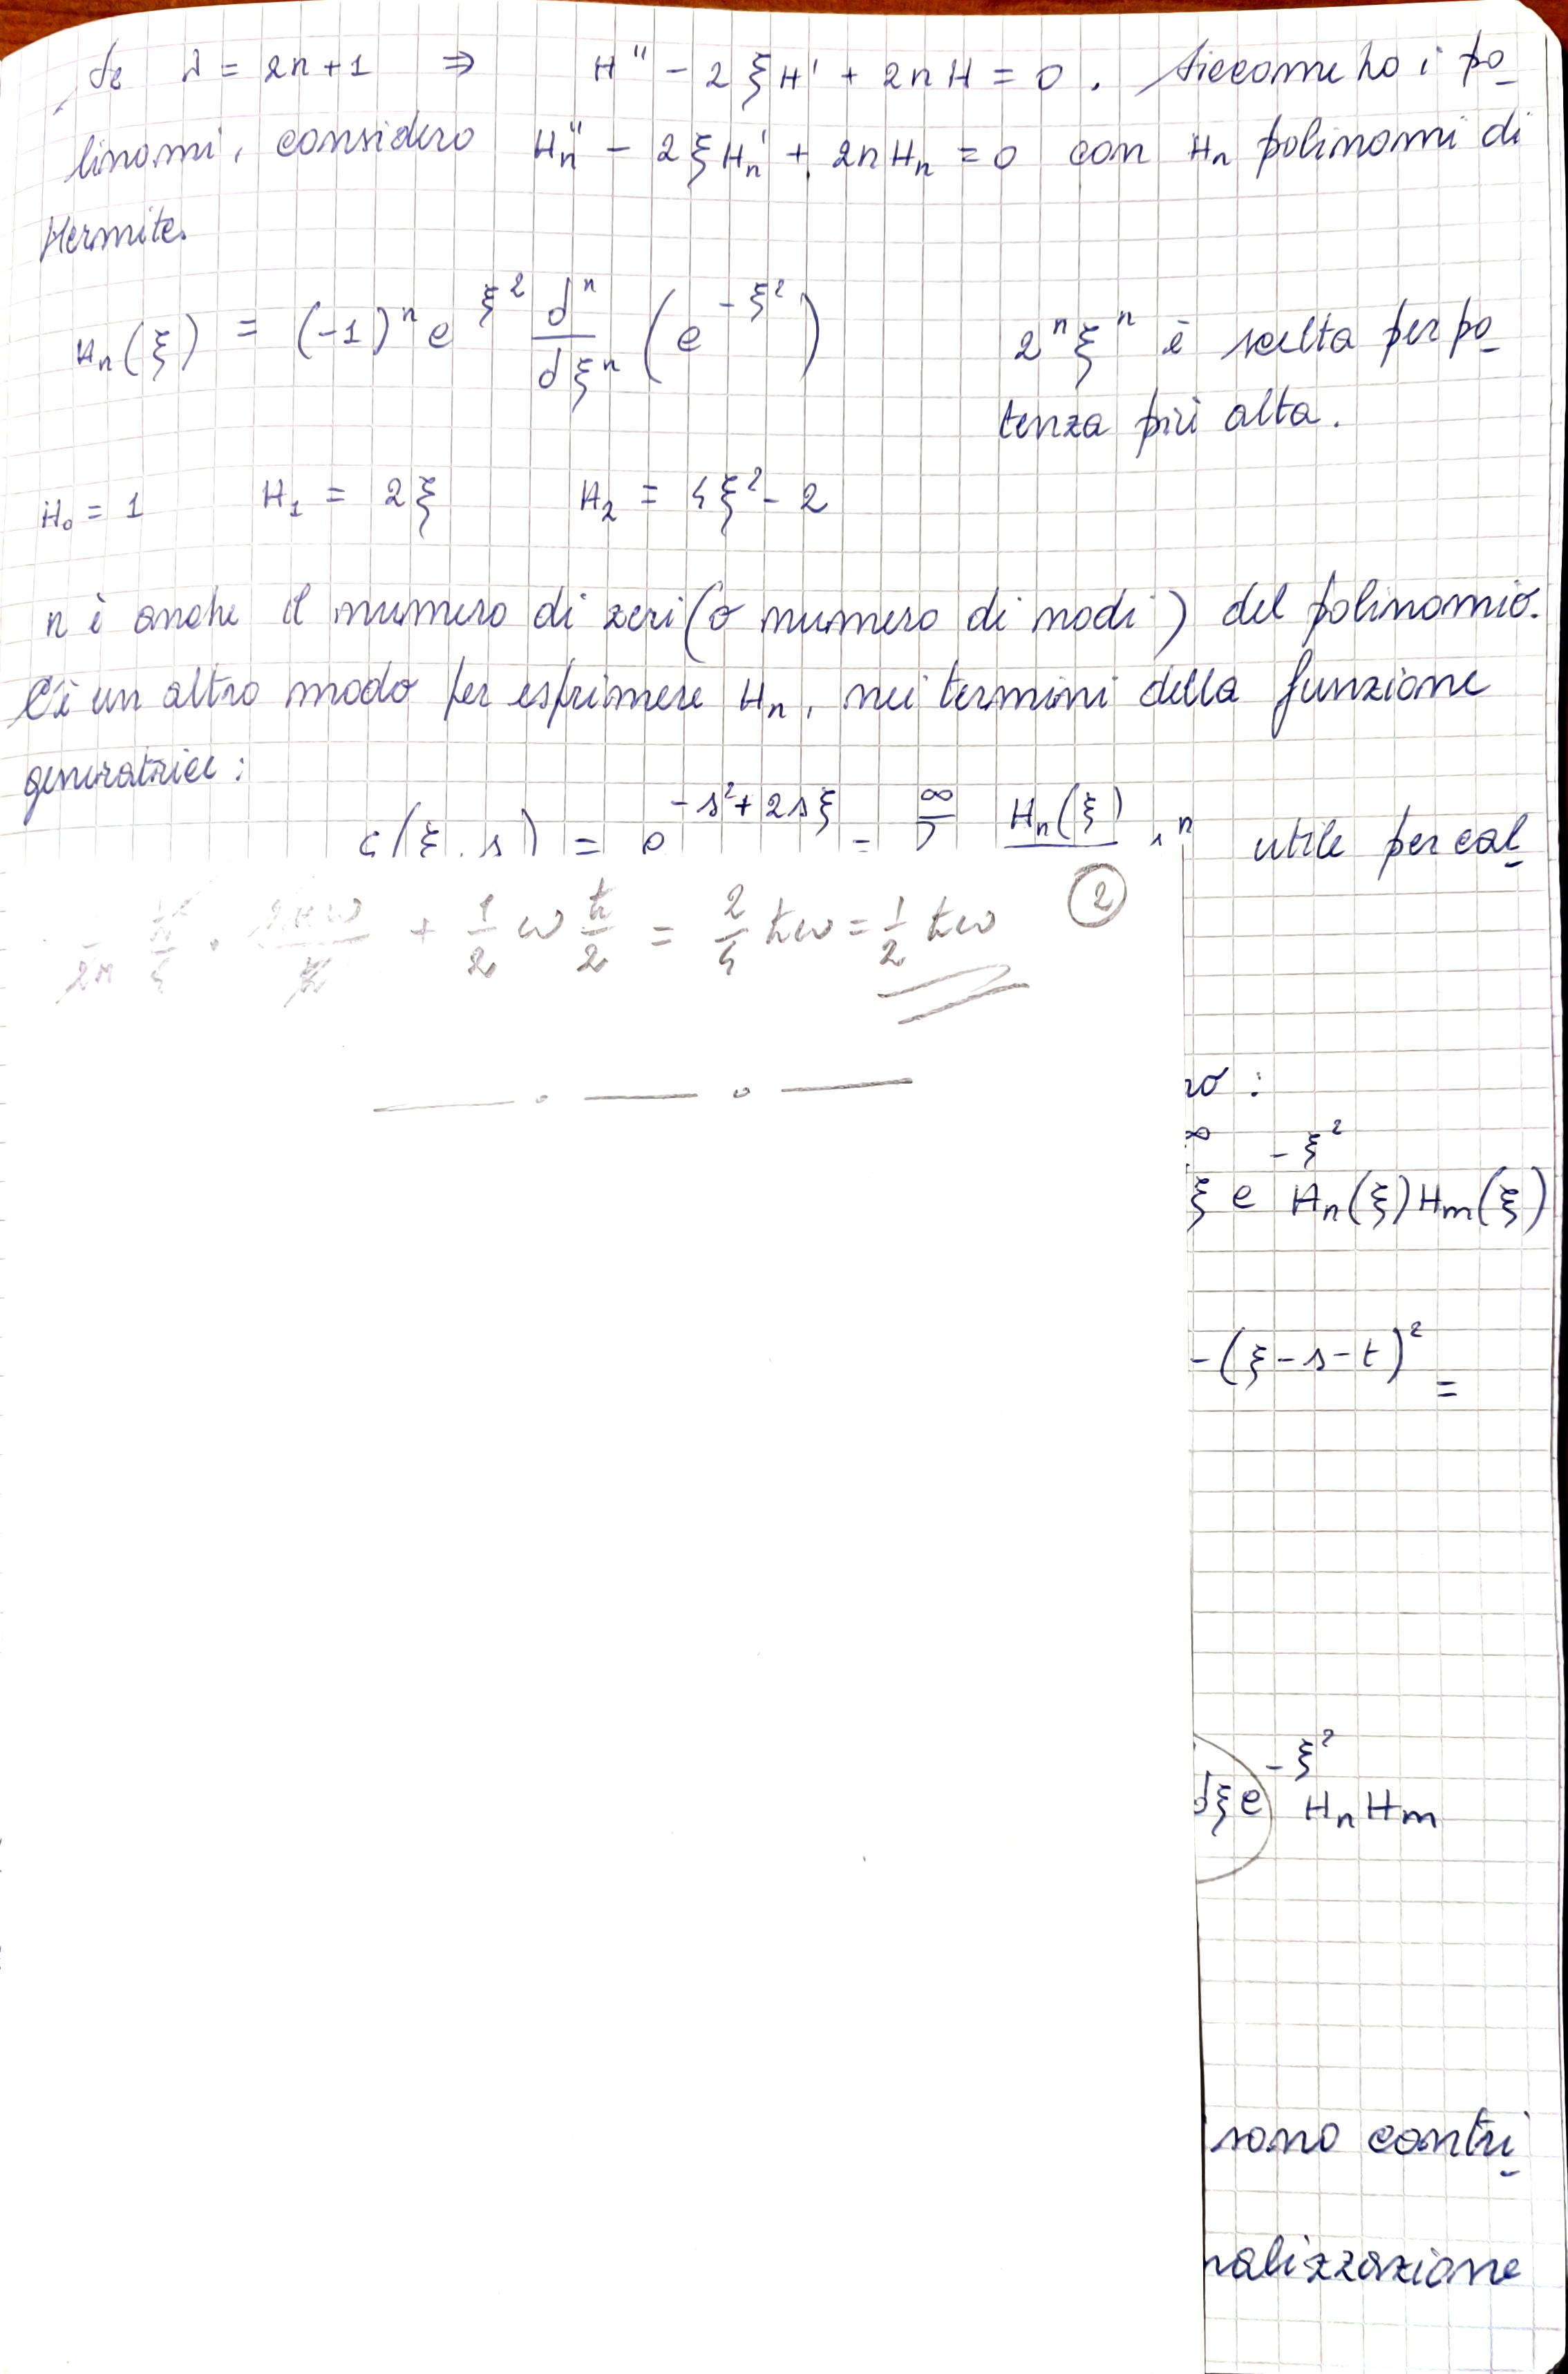 Se λ = 2n+1 ⇒ H'' - 2ξH' + 2nH = 0 . Siccome ho i po
linomi, considero Hn'' - 2ξHn' + 2nHn = 0 con Hn polinomi di
Hermite.
Hn(ξ) = (-1)^n e^{ξ^2} d^n/dξ^n (e^{-ξ^2}) 2^n ξ^n è scelta per po
tenza più alta.
H0 = 1 H1 = 2ξ H2 = 4ξ^2 - 2
n è anche il numero di zeri (o numero di nodi) del polinomio.
C'è un altro modo per esprimere Hn, nei termini della funzione
generatrice:
(ξ, s) = e^{-s^2 + 2sξ} = Hn(ξ) s^n utile per cal
+ 1/2 ω ħ/2 = 2/4 ħω = 1/2 ħω 2
ro :
∞
ξ e^{-ξ^2} Hn(ξ) Hm(ξ)
-(ξ-s-t)^2 =
dξ e^{-ξ^2} Hn Hm
sono contri
nalizzazione